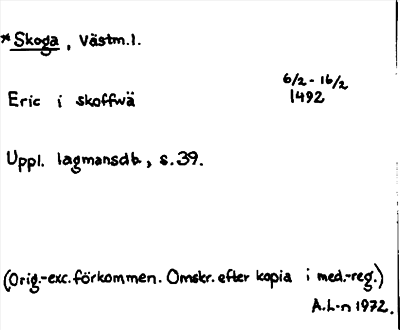 *Skoga, Västm.l.
6/2-16/2
Eric i skoffwä 1492
Uppl. lagmansdb, s.39.
(Orig.-exc. förkommen. Omskr. efter kopia i med.-reg.)
A.L-n 1972.